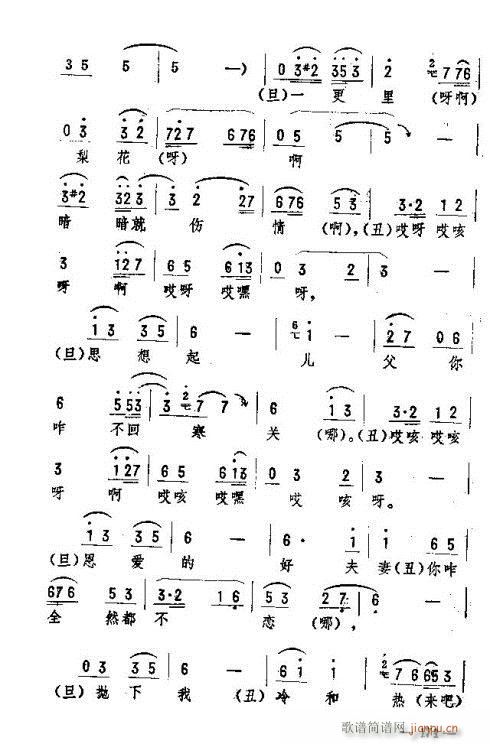 3 5 5 5 —) 0 3 #2 3 5 3 2 2 7 7 6
(旦)一 更 里 (呀啊)
0 3 3 2 7 2 7 6 7 6 0 5 5 5
梨 花 (呀) 啊
3 #2 3 2 3 3 2 2 7 6 7 6 5 3 3·2 1 2
暗 暗就 伤 情 (啊),(丑)哎呀 哎咳
3 1 2 7 6 5 6 1 3 0 3 2 3 —
呀 啊 哎呀 哎嘿 呀,
1 3 3 5 6 — 6 1 — 2 7 0 6
(旦)思 想 起 儿 父 你
6 5 5 3 3 2 7 7 6 1 3 3·2 1 2
咋 不回 寒 关 (哪)。(丑)哎咳 哎咳
3 1 2 7 6 5 6 1 3 0 3 2 3 —
呀 啊 哎咳 哎嘿 哎 咳 呀。
1 3 3 5 6 — 6· 1 1 6 5
(旦)恩 爱 的 好 夫 妻(丑)你咋
6 7 6 5 3 3·2 1 6 0 3 2 7 6 —
全 然都 不 恋 (哪),
0 3 3 5 6 — 6 1 1 2 7 6 6 5 3
(旦)抛 下 我 (丑)冷 和 热 (来吧)
歌谱简谱网
jianpu.cn